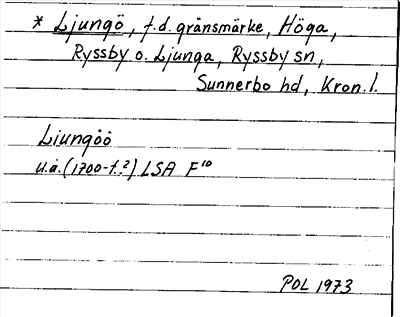 * Ljungö, f.d. gränsmärke, Höga,
Ryssby o. Ljunga, Ryssby sn,
Sunnerbo hd, Kron. l.
Liungöö
u.å. (1700-t.?) LSA F¹⁰
POL 1973